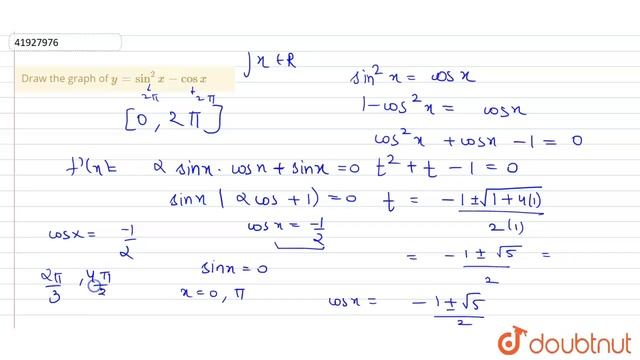 41927976
Draw the graph of y = sin² x − cos x
2π 2π
∫ x ∈ R
[0, 2π]
sin²x = cosx
1-cos²x = cosx
cos²x + cosx -1 = 0
f'(x) = 2 sinx · cosx + sinx = 0
t² + t - 1 = 0
sinx (2cos + 1) = 0
t = -1 ± √1+4(1) / 2(1)
cosx = -1/2
cosx = -1/2
= -1 ± √5 / 2 =
2π/3 , 4π/3
sinx = 0
x = 0, π
cosx = -1 ± √5 / 2
doubtnut